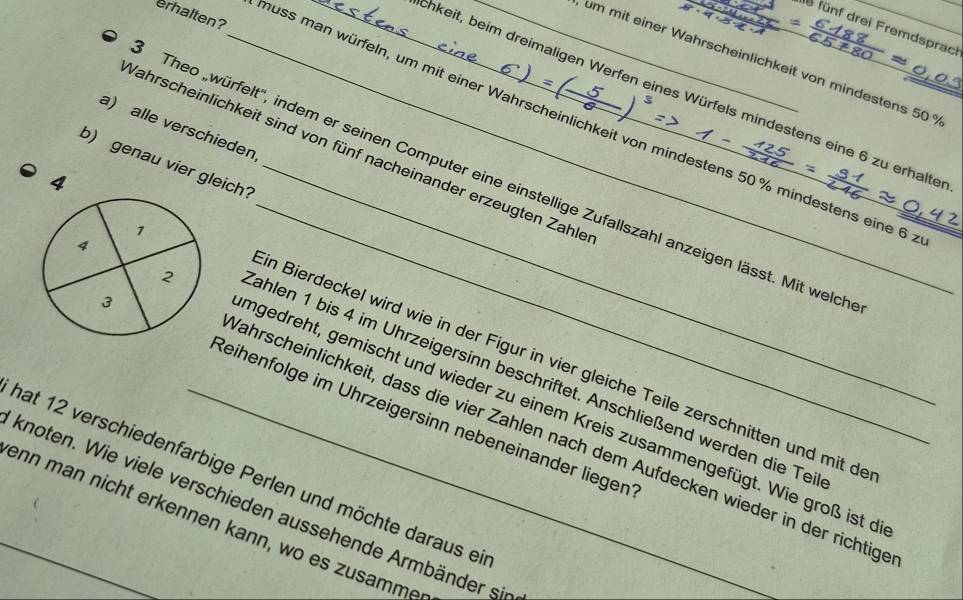 fünf drei Fremdsprach
= 6188/65780 ≈ 0,03
um mit einer Wahrscheinlichkeit von mindestens 50 %
lichkeit, beim dreimaligen Werfen eines Würfels mindestens eine 6 zu erhalten.
eine 6) = (5/6)³ => 1 - 125/216 = 91/216 ≈ 0,42
muss man würfeln, um mit einer Wahrscheinlichkeit von mindestens 50 % mindestens eine 6 zu
erhalten?
3 Theo „würfelt“, indem er seinen Computer eine einstellige Zufallszahl anzeigen lässt. Mit welcher
Wahrscheinlichkeit sind von fünf nacheinander erzeugten Zahlen
a) alle verschieden,
b) genau vier gleich?
4
1
4
2
3
Ein Bierdeckel wird wie in der Figur in vier gleiche Teile zerschnitten und mit den
Zahlen 1 bis 4 im Uhrzeigersinn beschriftet. Anschließend werden die Teile
umgedreht, gemischt und wieder zu einem Kreis zusammengefügt. Wie groß ist die
Wahrscheinlichkeit, dass die vier Zahlen nach dem Aufdecken wieder in der richtigen
Reihenfolge im Uhrzeigersinn nebeneinander liegen?
li hat 12 verschiedenfarbige Perlen und möchte daraus ein
d knoten. Wie viele verschieden aussehende Armbänder sind
wenn man nicht erkennen kann, wo es zusammen